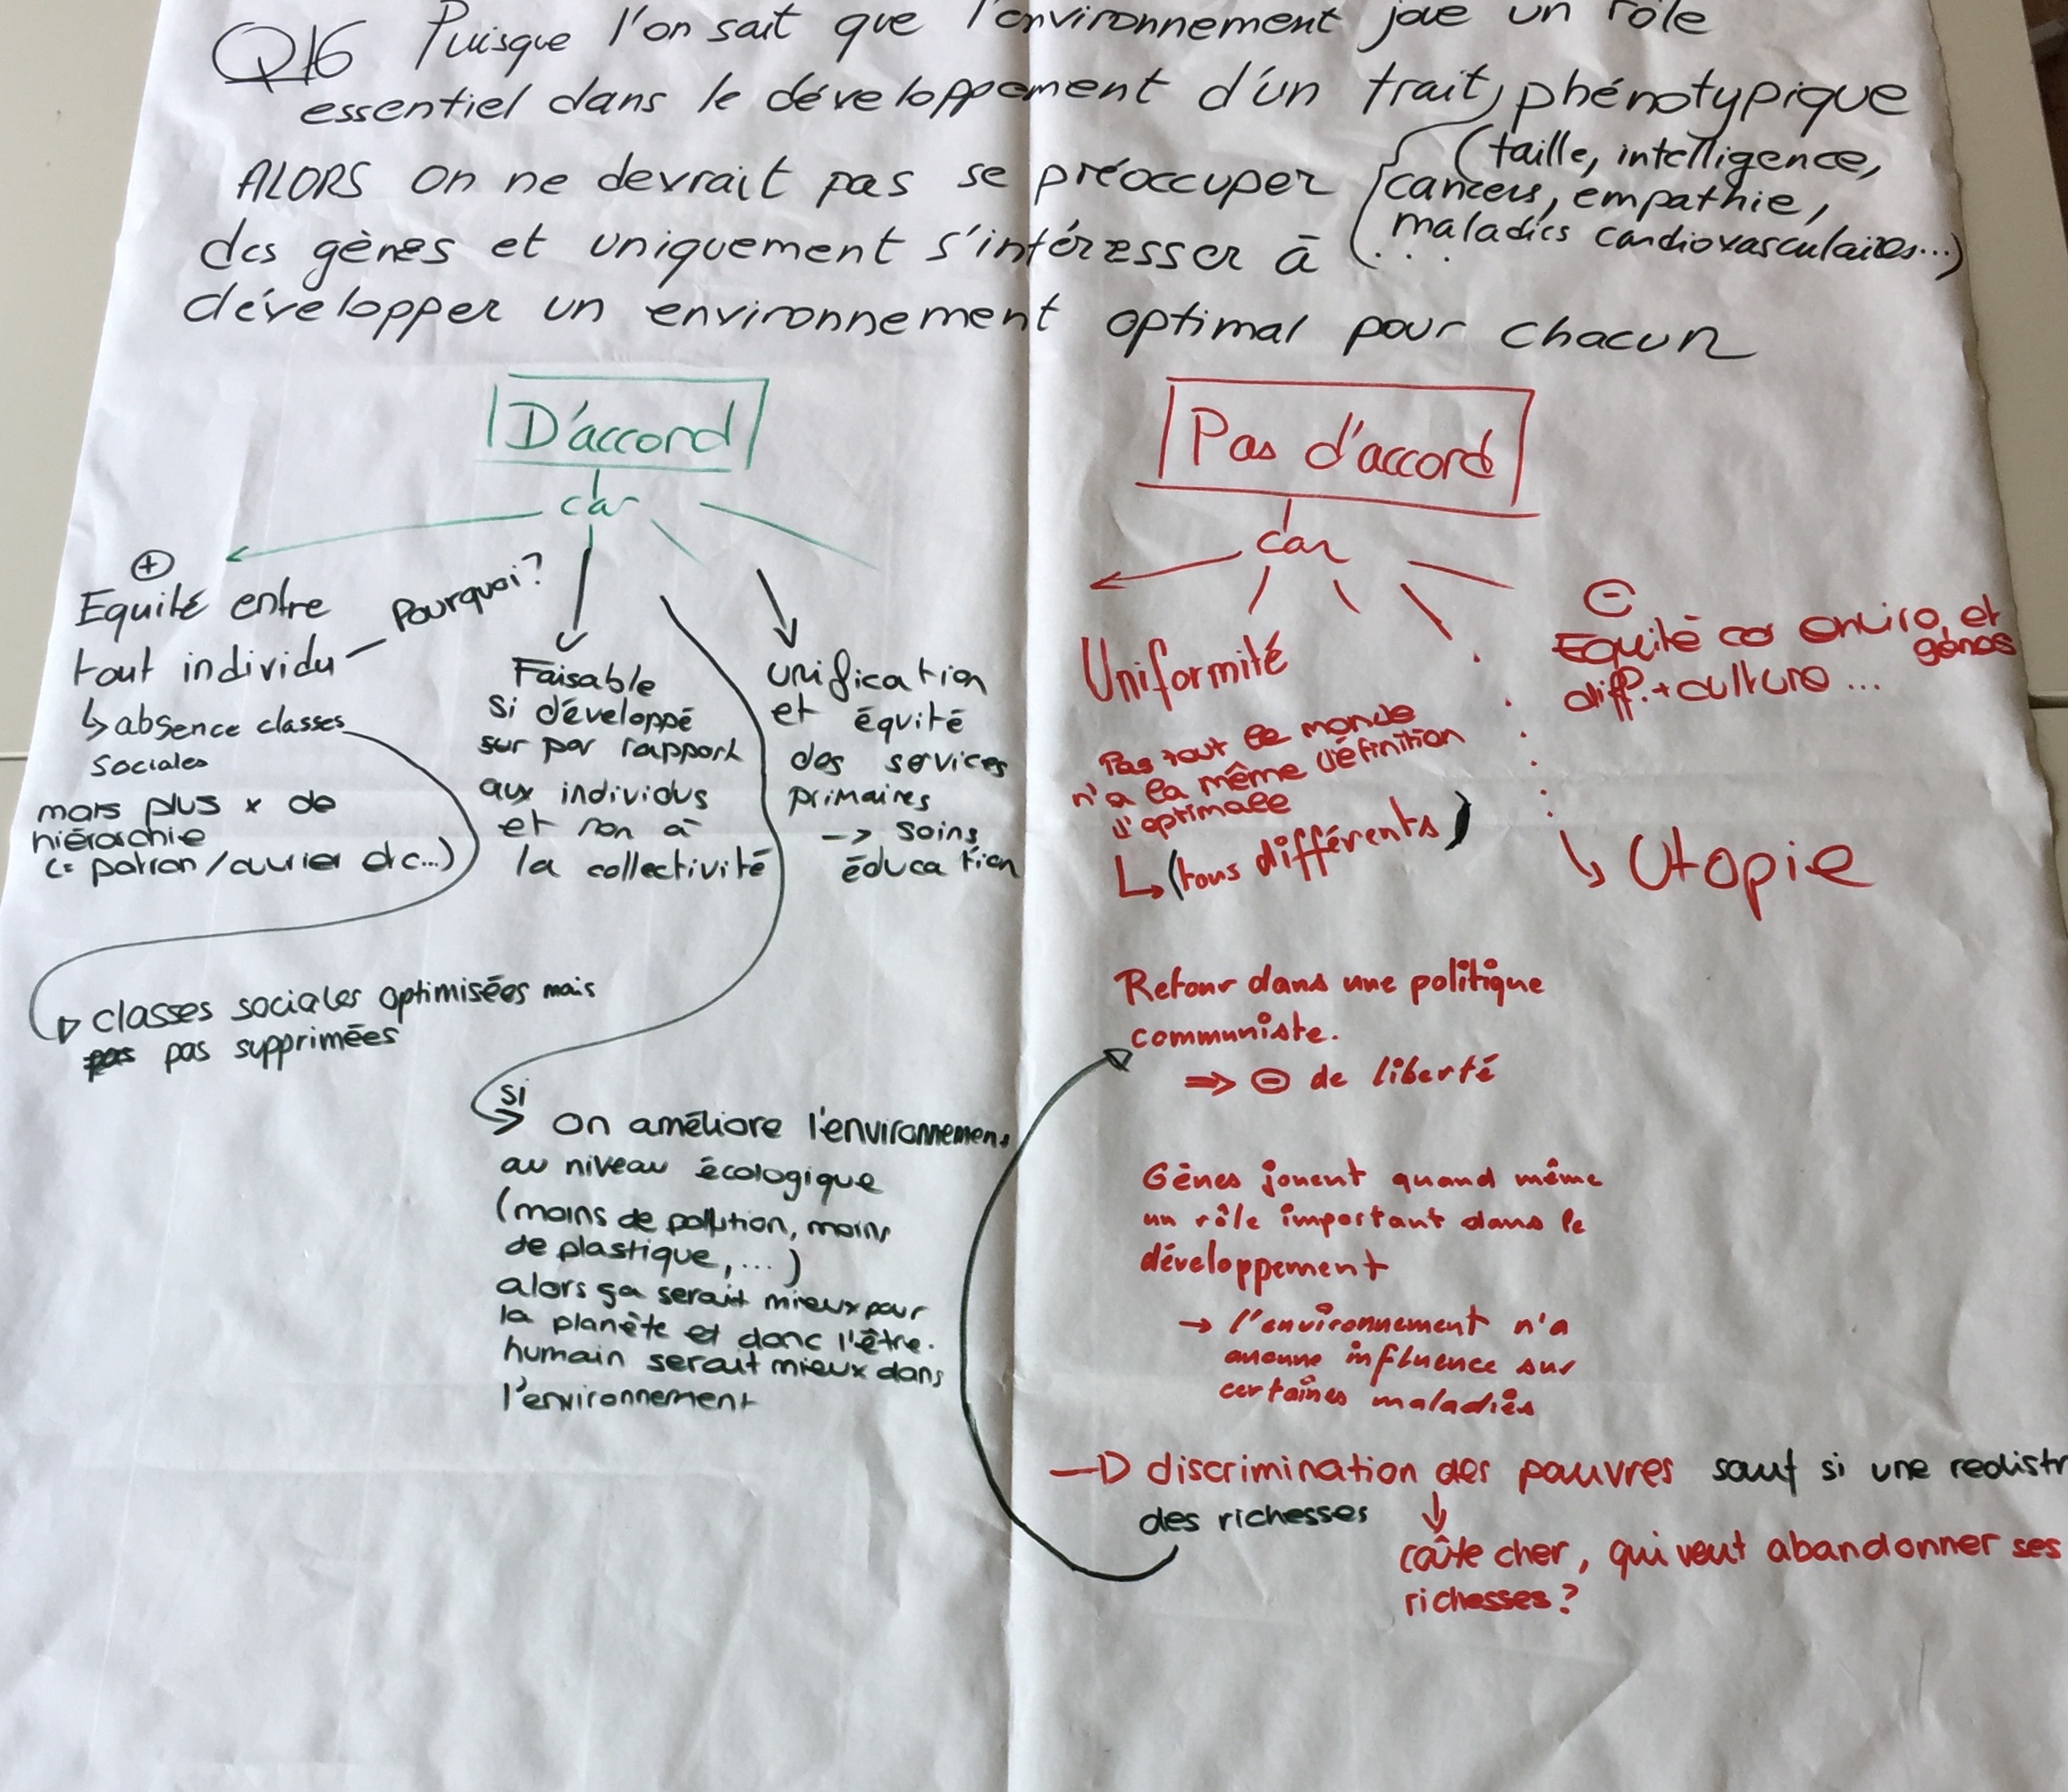 Q16 Puisque l'on sait que l'environnement joue un rôle
essentiel dans le développement d'un trait phénotypique
(taille, intelligence,
cancers, empathie,
maladies cardiovasculaires...)
...
ALORS on ne devrait pas se préoccuper
des gènes et uniquement s'intéresser à
développer un environnement optimal pour chacun
D'accord
car
+
Equité entre
tout individu
Pourquoi?
↳ absence classes
sociales
mais plus x de
hiérarchie
(= patron/ouvrier etc...)
classes sociales optimisées mais
pas pas supprimées
Faisable
si développé
sur par rapport
aux individus
et non à
la collectivité
unification
et équité
des services
primaires
-> soins
éducation
si
on améliore l'environnement
au niveau écologique
(moins de pollution, moins
de plastique, ...)
alors ça serait mieux pour
la planète et donc l'être
humain serait mieux dans
l'environnement
Pas d'accord
car
Uniformité
Pas tout le monde
n'a la même définition
d'optimale
↳ (tous différents)
-
Equité car enviro. et
gènes
diff. + culture ...
Utopie
Retour dans une politique
communiste.
⇒ ⊖ de liberté
Gènes jouent quand même
un rôle important dans le
développement
→ l'environnement n'a
aucune influence sur
certaines maladies
discrimination des pauvres sauf si une redistr
des richesses
coûte cher, qui veut abandonner ses
richesses?